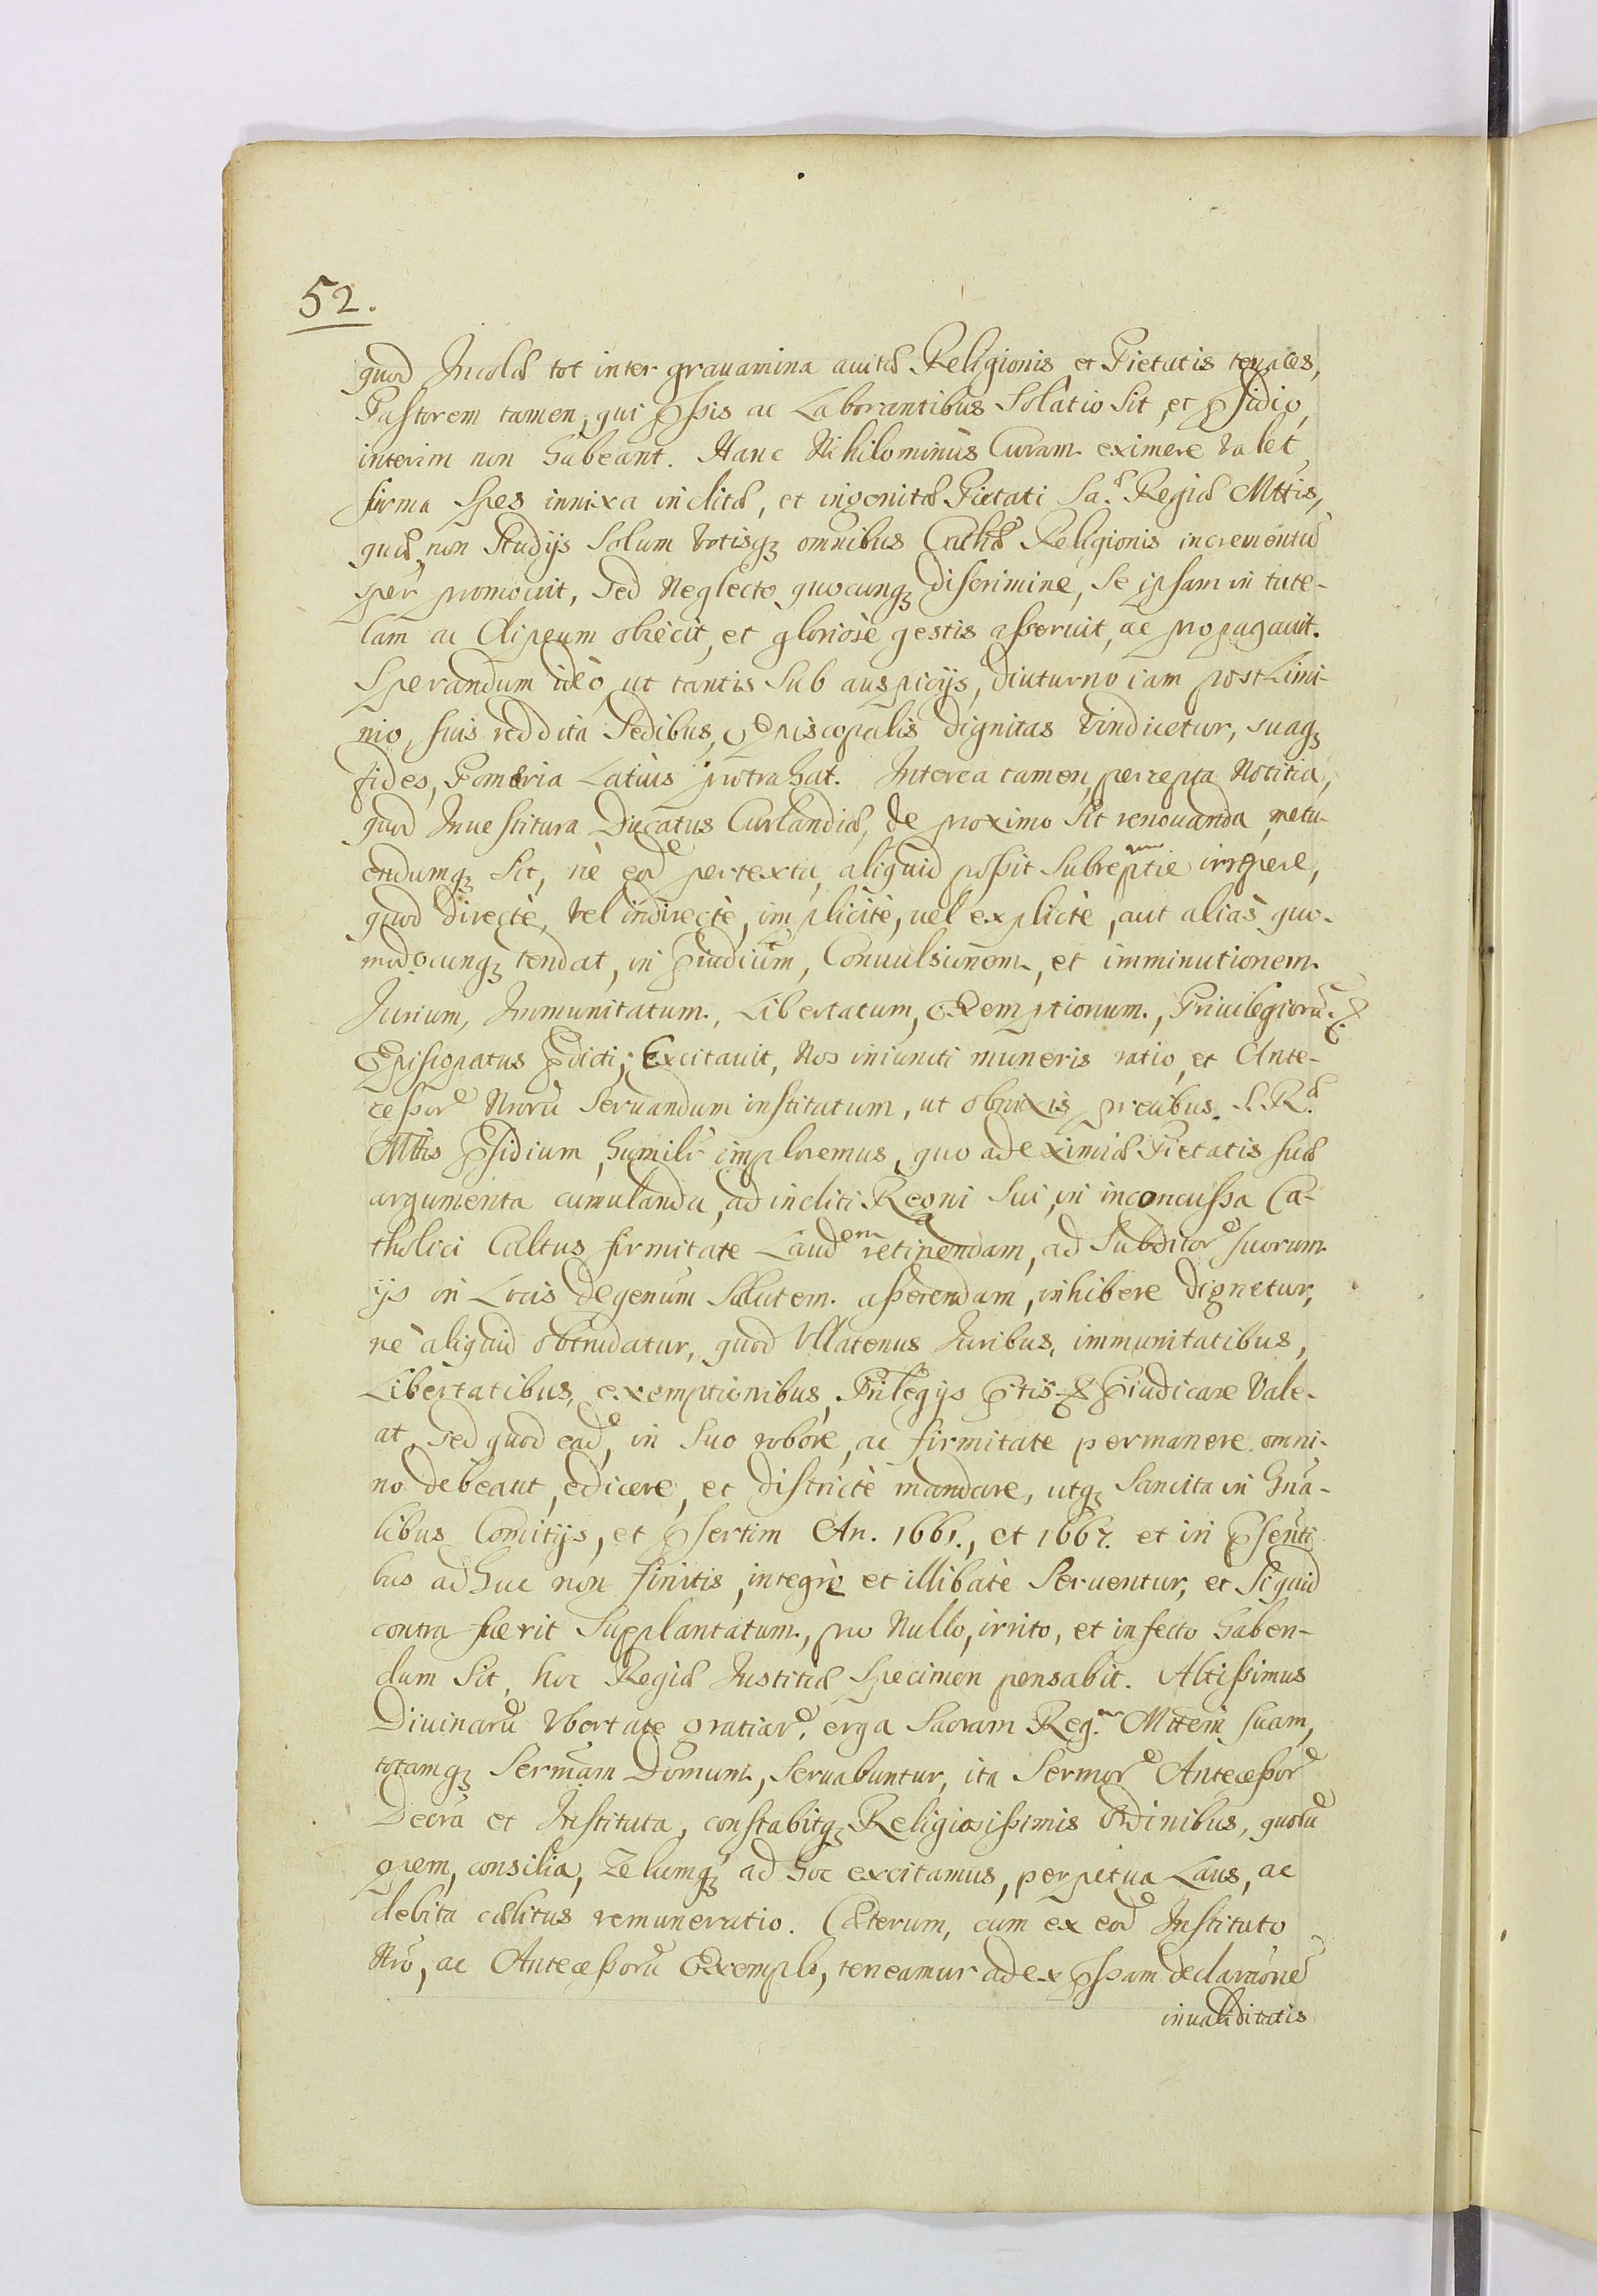 52.
quod Incolæ tot inter grauamina auitæ Religionis et Pietatis tenaces,
Pastorem tamen, qui p̃ssis ac Laborantibus Solatio Sit, et p̃sidio,
interim non habeant. Hanc Nihilominùs Curam eximere valet,
firma Spes innixa inclitæ, et ingenitæ Pietati Sa.æ Regiæ Mttis,
quæ, non Studijs Solum votisq; omnibus Cathæ Religionis incrementũ
sper promouit, sed Neglecto quocunq; discrimine, Se ipsam in tute-
lam ac Clipeum obiecit, et gloriosè gestis asseruit, ac propagauit.
Sperandum ideò, ut tantis Sub auspicijs, diuturno iam postLimi-
nio, suis reddita Sedibus, Episcopalis dignitas vindicetur, suaq;
fides, Pomeria Latiùs protrahat. Interea tamen, percepta Notitia,
quod Inuestitura Ducatus Curlandiæ, de proximo Sit renouanda, metu-
endumq; Sit, nè eod̃ pertextu, aliquid possit Subreptie irrepere,
quod directè, vel indirectè, implicitè, uel explictè, aut aliàs quo-
modocunq; tendat, in p̃iudicium, Conuulsionem, et imminutionem
Iurium, Immunitatum, Libertatum, Exemptionum, Priuilegiorũ &
Episcopatus p̃dicti; Excitauit, Nos iniuncti muneris ratio, et Ante-
cessor̃ Nrorũ Seruandum institutum, ut obnixis precibus S. R.æ
Mttis p̃sidium humilr̃ imploremus, quo ad eximiæ Pietatis suæ
argumenta cumulanda, ad incliti Regni Sui, in inconcussa Ca-
tholici Cultus firmitate Laudem retinendam, ad Subditor̃ suorum
ijs in Locis degenũm Salutem asserendam, inhibere dignetur,
nè aliquid obtrudatur, quod Vllatenus Iuribus, immunitatibus,
Libertatibus, exemptionibus, Prilegijs p̃tis & p̃iudicare Vale-
at, sed quod ead̃, in Suo robore, ac firmitate permanere omni-
no debeant, edicere, et districtè mandare, utq; Sancita in Gña-
libus Comitijs, et p̃sertim An. 1661., et 1667. et in p̃senti
bus adhuc non finitis, integrè et illibatè Seruentur, et Siquid
contra fuerit Supplantatum, pro Nullo, irrito, et infecto haben-
dum Sit, hoc Regiæ Iustitiæ Specimen pensabit. Altissimus
Diuinarũ Vbertate gratiar̃, erga Sacram Reg.am Mttem suam,
totamq; Sermam Domum, Seruabuntur, ita Sermor̃ Antecessor̃
Decra et Instituta, constabitq; Religiosissimis Ordinibus, quorũ
opem, consilia, Zelumq; ad hoc excitamus, perpetua Laus, ac
debita cælitus remuneratio. Cæterum, cum ex eod̃ Instituto
Nrõ, ac Antecessorũ Exemplo, teneamur ad exp̃ssam declarationẽ
inualiditatis